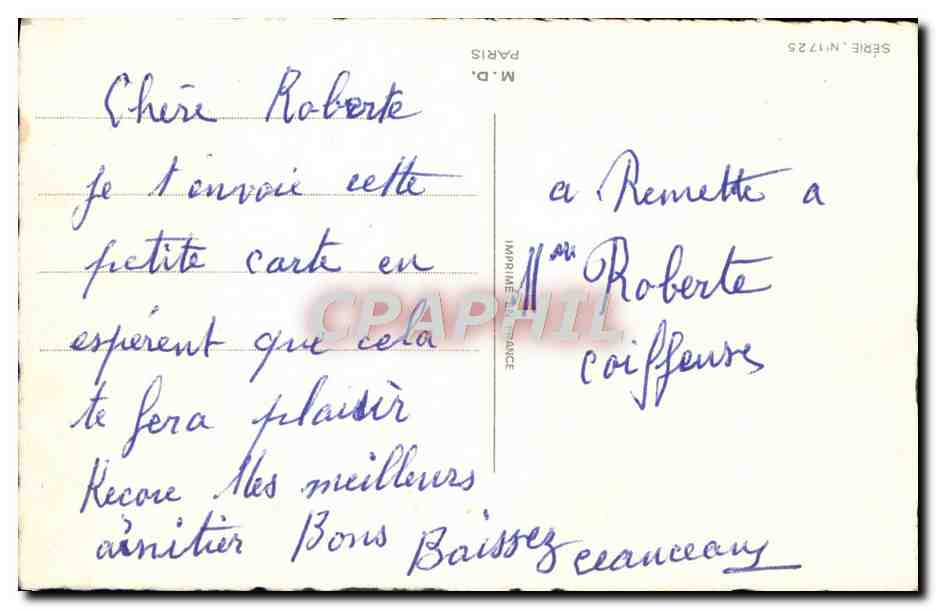 Chère Roberte
je t'envoie cette
petite carte en
espérent que cela
te fera plaisir
Recoie Mes meilleurs
amitier Bons Baissez
a Remette a
Roberte
coiffeuse
SÉRIE. N°1725
M.D.
PARIS
IMPRIMÉ EN FRANCE
CPAPHIL